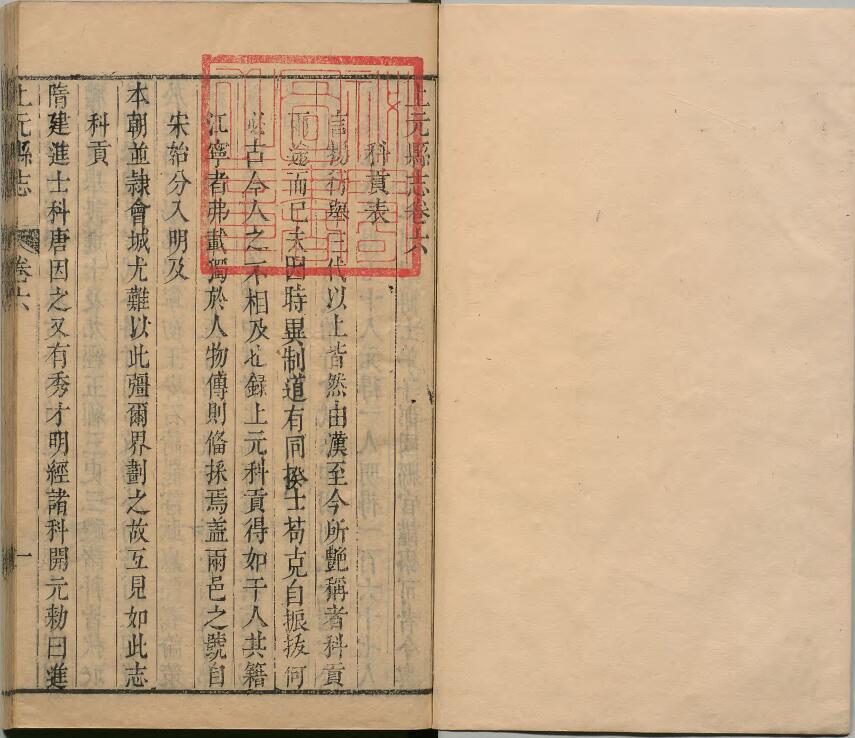 上元縣志卷六
科貢表
言揚行舉三代以上皆然由漢至今所艷稱者科貢
兩途而已夫因時異制道有同揆士苟克自振拔何
必古今人之不相及也錄上元科貢得如干人其籍
江寧者弗載獨於人物傳則備採焉蓋兩邑之號自
宋始分入明及
本朝並隷會城尤難以此彊爾界劃之故互見如此志
科貢
隋建進士科唐因之又有秀才明經諸科開元勅曰進
上元縣志
卷六
一